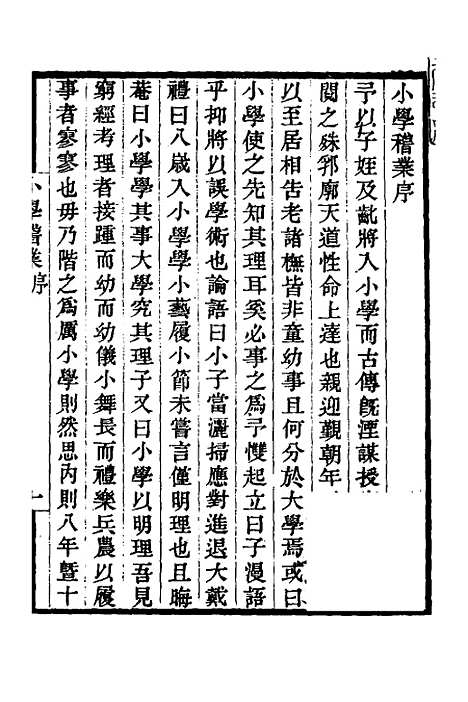 小學稽業序
予以子姪及齔將入小學而古傳旣湮謀授
閱之殊郛廓天道性命上達也親迎覲朝年
以至居相告老諸檻皆非童幼事且何分於大學焉或曰
小學使之先知其理耳奚必事之爲予戄起立曰子漫語
乎抑將以誤學術也論語曰小子當灑掃應對進退大戴
禮曰八歲入小學學小藝履小節未嘗言僅明理也且晦
菴曰小學學其事大學究其理子又曰小學以明理吾見
窮經考理者接踵而幼而幼儀小舞長而禮樂兵農以履
事者寥寥也毋乃階之爲厲小學則然思內則八年暨十
小學稽業序
一